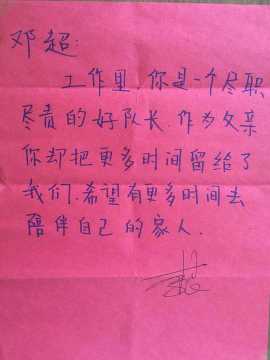 邓超:
工作里,你是一个尽职
尽责的好队长.作为父亲
你却把更多时间留给了
我们.希望有更多时间去
陪伴自己的家人.